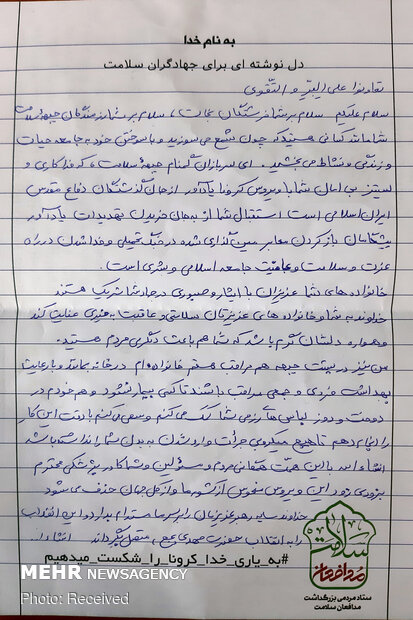 به نام خدا
دل نوشته ای برای جهادگران سلامت
تعاونوا علی البِرّ و التقوی
سلام علیکم سلام بر شما فرشتگان نجات، سلام بر شما رزمندگان جبهه سلامت
شما مانند کسانی هستید که چون شمع می سوزید و با سوختن خود به جامعه حیات
و زندگی و نشاط می بخشید. ای سربازان گمنام جبهه سلامت، که فداکاری و
ستیز بی امان شما با ویروس کرونا یادآور از جان گذشتگان دفاع مقدس
ایران اسلامی است استقبال شما از به جان خریدن تهدیدات یادآور
پیشگامان باز کردن معابر مین گذاری شده در جنگ تحمیلی و فدا شدن در راه
عزت و سلامت و عافیت جامعه اسلامی و بشری است.
خانواده های شما عزیزان با ایثار و صبوری در جهاد شما شریک هستند
خداوند به شما و خانواده های عزیزتان سلامتی و عاقبت به خیری عنایت کند
و همواره دلتان گرم باشد که شما هم باعث دلگرمی مردم هستید.
من نیز در پشت جبهه هم مراقب هستم خانواده ام در خانه بمانند و با رعایت
بهداشت فردی و جمعی مراقب باشند تا کسی بیمار نشود و هم خودم در
دوخت و دوز لباس های رزمی شما کمک می کنم و سعی می کنم با دقت این کار
را انجام دهم تا هیچ میکروبی جرأت وارد شدن به بدن شما را نداشته باشد
انشاءالله با این همت همگانی مردم و مسئولین و شما کادر پزشکی محترم
بزودی زود این ویروس منحوس از کشور ما و از کل جهان حذف می شود
خداوند سایه رهبر عزیزمان را بر سر ما مستدام بدارد و این انقلاب
را به انقلاب حضرت مهدی عج متصل بگرداند انشاءا...
#به_یاری_خدا_کرونا_را_شکست_میدهیم
سلامت
مدافعان
ستاد مردمی بزرگداشت
مدافعان سلامت
MEHR NEWSAGENCY
Photo: Received